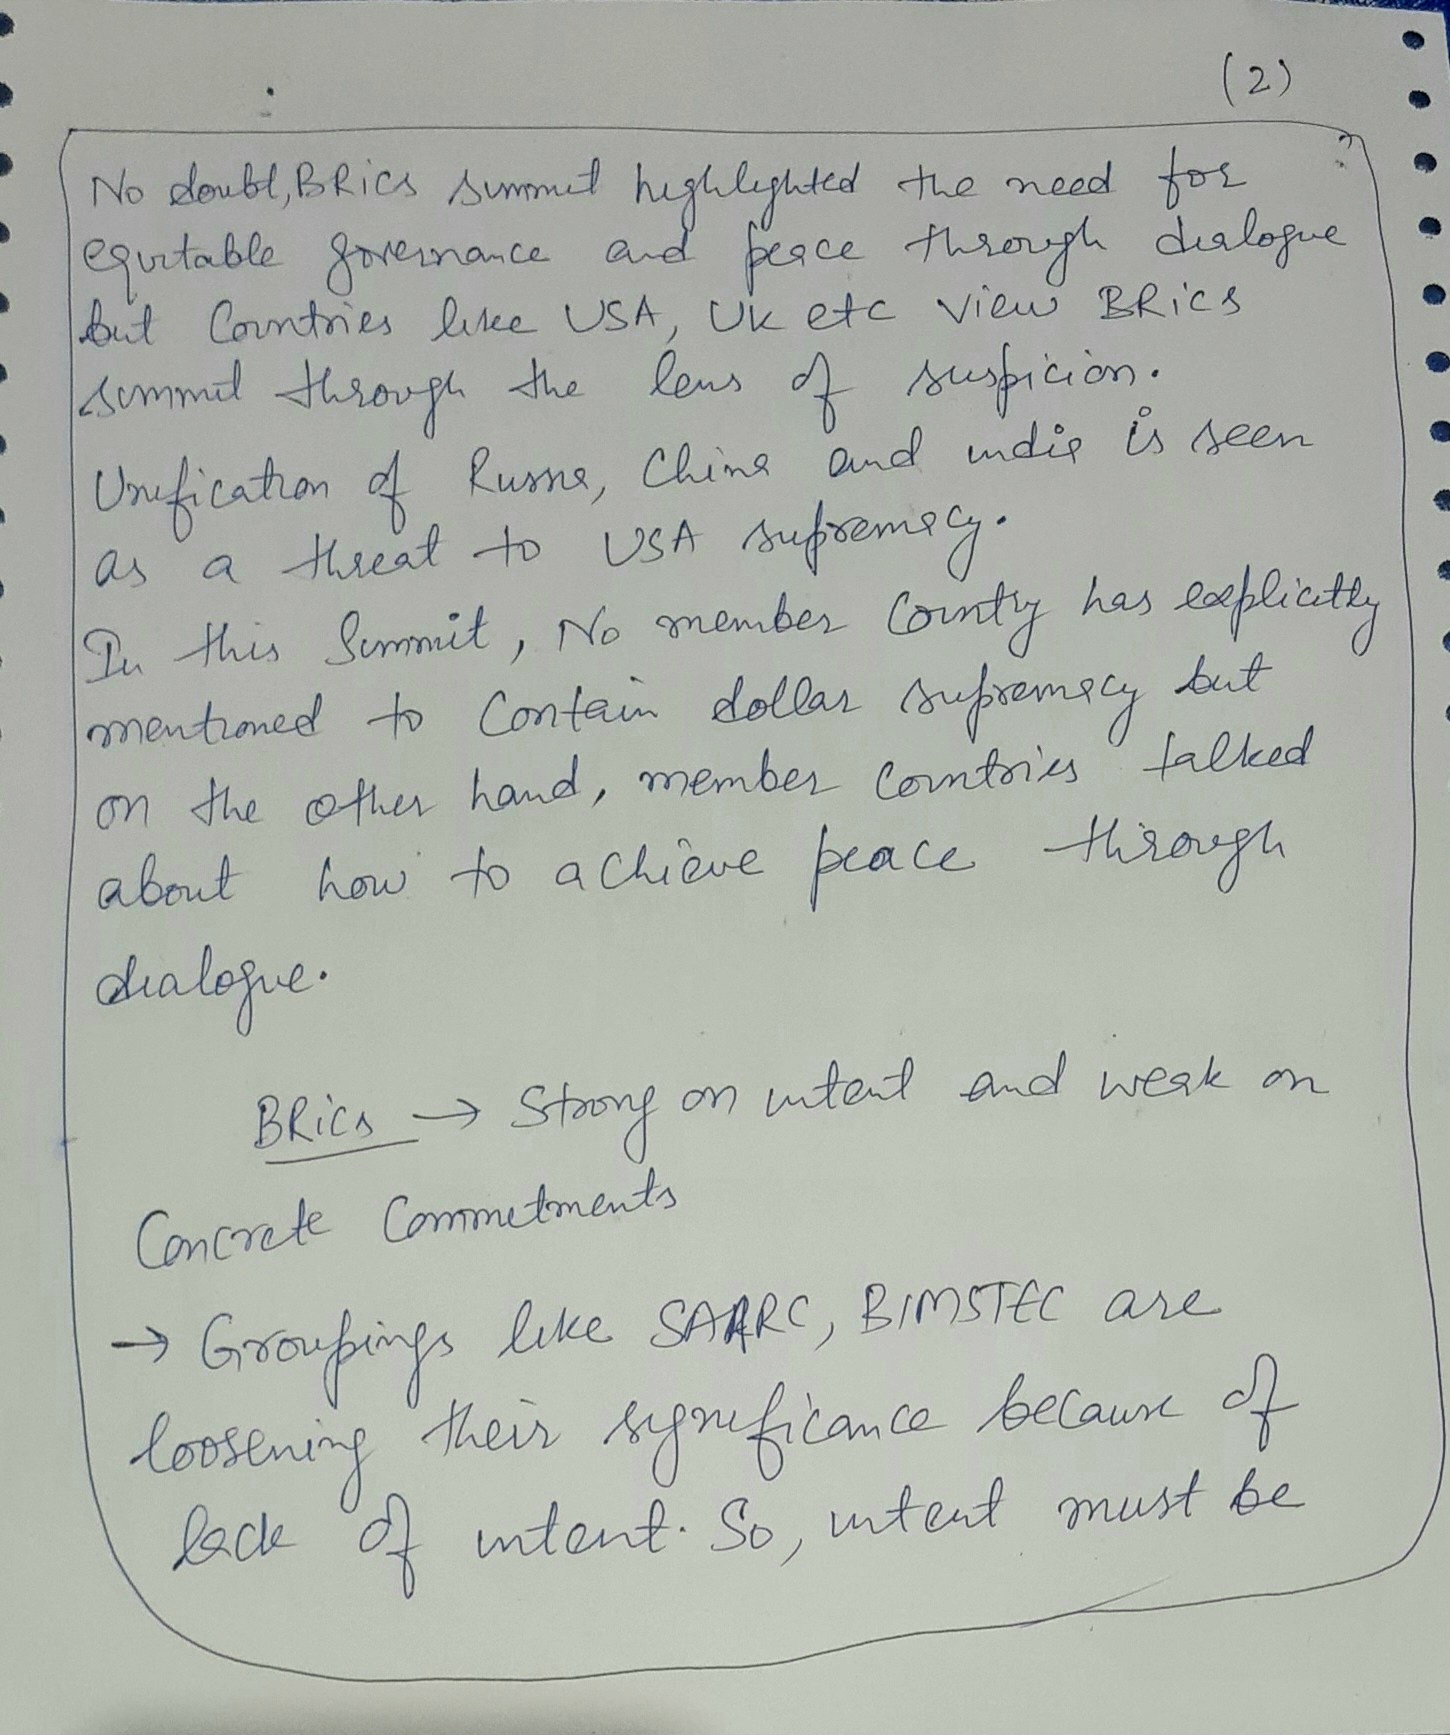 (2)
No doubt, BRICS summit highlighted the need for
equitable governance and peace through dialogue
but Countries like USA, UK etc view BRICS
summit through the lens of suspicion.
Unification of Russia, China and india is seen
as a threat to USA supremacy.
In this Summit, No member Country has explicitly
mentioned to Contain dollar supremacy but
on the other hand, member Countries talked
about how to achieve peace through
dialogue.
BRICS → Strong on intent and weak on
Concrete Commitments
→ Groupings like SAARC, BIMSTEC are
loosening their significance because of
lack of intent. So, intent must be